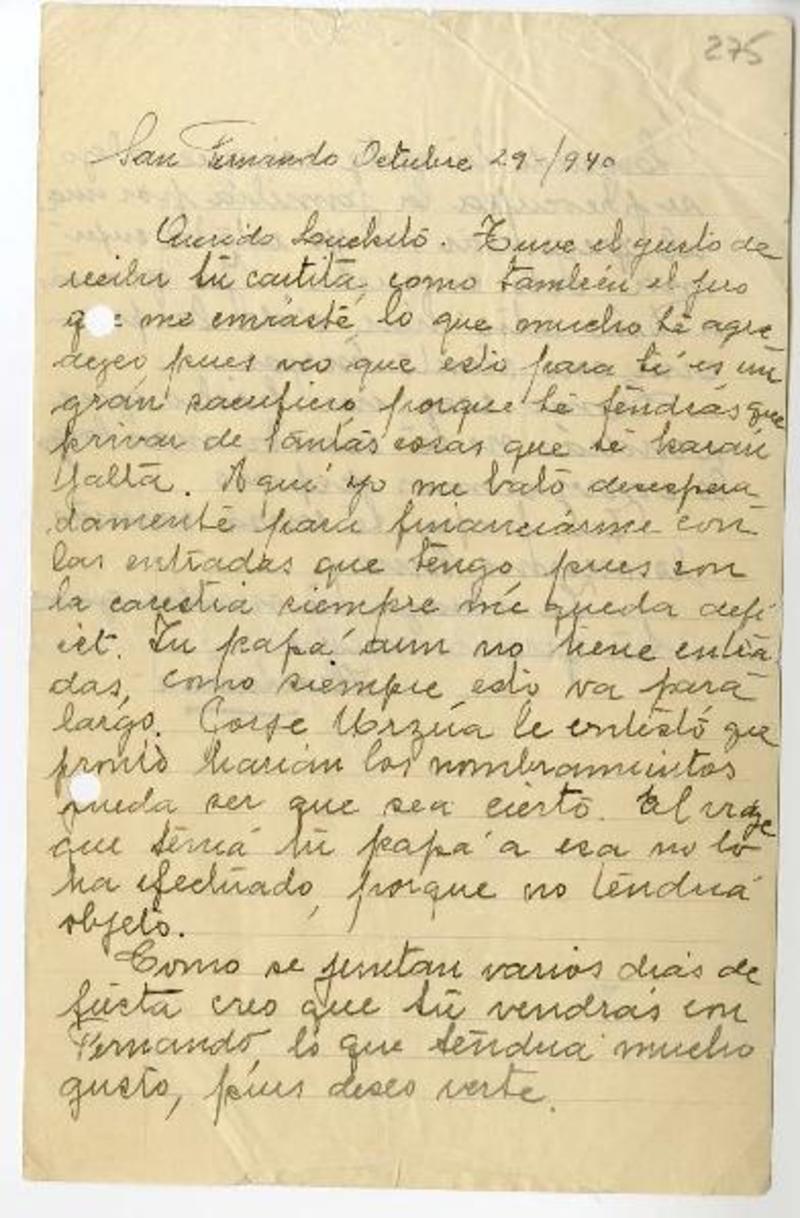 275
San Fernando Octubre 29-/940
Querido Luchito. Tuve el gusto de
recibir tú cartita, como también el jiro
que me enviaste, lo que mucho té agra
dezco pues veo que esto para tí es un
grán sacrificio, porque té tendrás que
privar de tantas cosas que té harán
falta. Aquí yo me bato desespera
damente para financiarme con
las entradas que tengo, pues con
la carestia siempre me queda defi
cit. Tu papá aun no tiene entra
das, como siempre esto va para
largo. Urzúa le contestó que
pronto harian los nombramientos
pueda ser que sea cierto. El viaje
que tenia tú papá a esa no lo
ha efectuado, porque no tendria
objeto.
Como se juntan varios dias de
fiesta creo que tú vendrás con
Fernando, lo que tendria mucho
gusto, pues deseo verte.